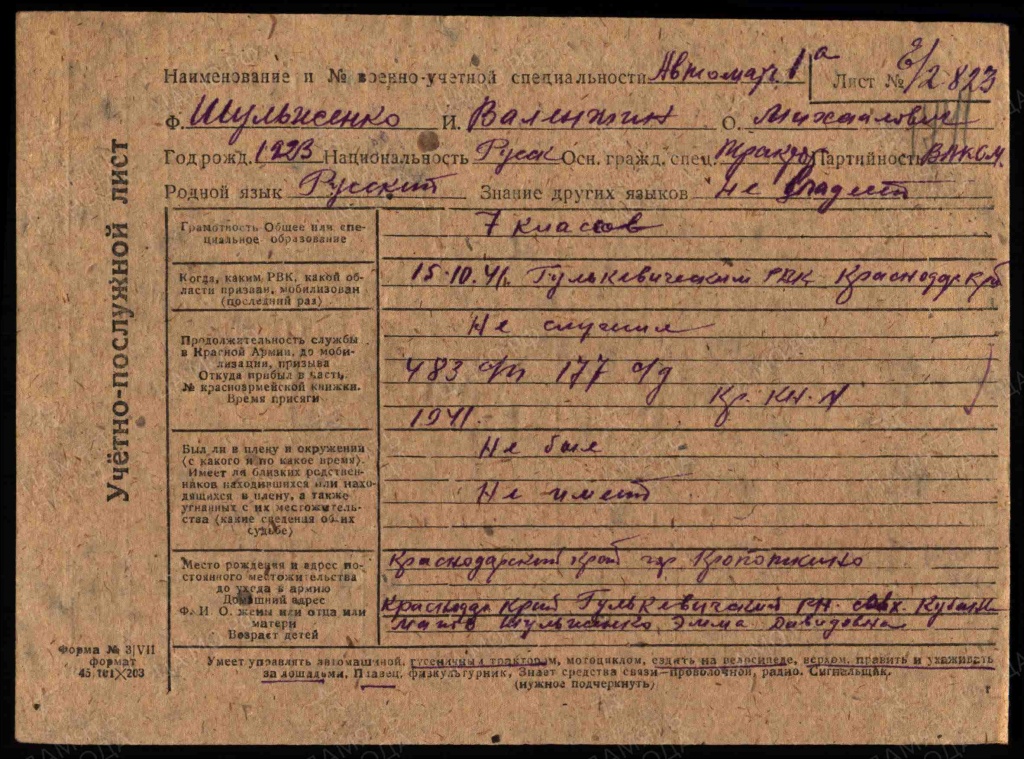 Учётно-послужной лист
Наименование и № военно-учетной специальности Автомат. 1а Лист № 6/2823
Ф. Шульженко И. Валентин О. Михайлович
Год рожд. 1923 Национальность Русск Осн. гражд. спец. Тракт Партийность ВЛКСМ.
Родной язык Русский Знание других языков не владеет
Грамотность Общее или спе-
циальное образование
7 классов
Когда, каким РВК, какой об-
ласти призван, мобилизован
(последний раз)
15.10.41. Гулькевическим РВК, Краснодар кр
Продолжительность службы
в Красной Армии, до моби-
лизации, призыва
Откуда прибыл в часть,
№ красноармейской книжки.
Время присяги
Не служил
483 с/п 177 с/д
Кр. кн. №
1941.
Был ли в плену и окружении
(с какого и по какое время).
Имеет ли близких родствен-
ников находившихся или нахо-
дящихся в плену, а также
угнанных с их местожитель-
ства (какие сведения об их
судьбе)
Не был
Не имеет
Место рождения и адрес по-
стоянного местожительства
до ухода в армию
Домашний адрес
Ф. И. О. жены или отца или
матери
Возраст детей
Краснодарский край гор. Кропоткино
Краснодар край Гулькевический рн. свх. Кубань
мать Шульженко Эмма Давидовна
Форма № 3|VII
формат
45,1х1✕203
Умеет управлять автомашиной, гусеничным трактором, мотоциклом, ездить на велосипеде, верхом, править и ухаживать
за лошадьми, Пловец, физкультурник, Знает средства связи—проволочной, радио. Сигнальщик.
(нужное подчеркнуть)